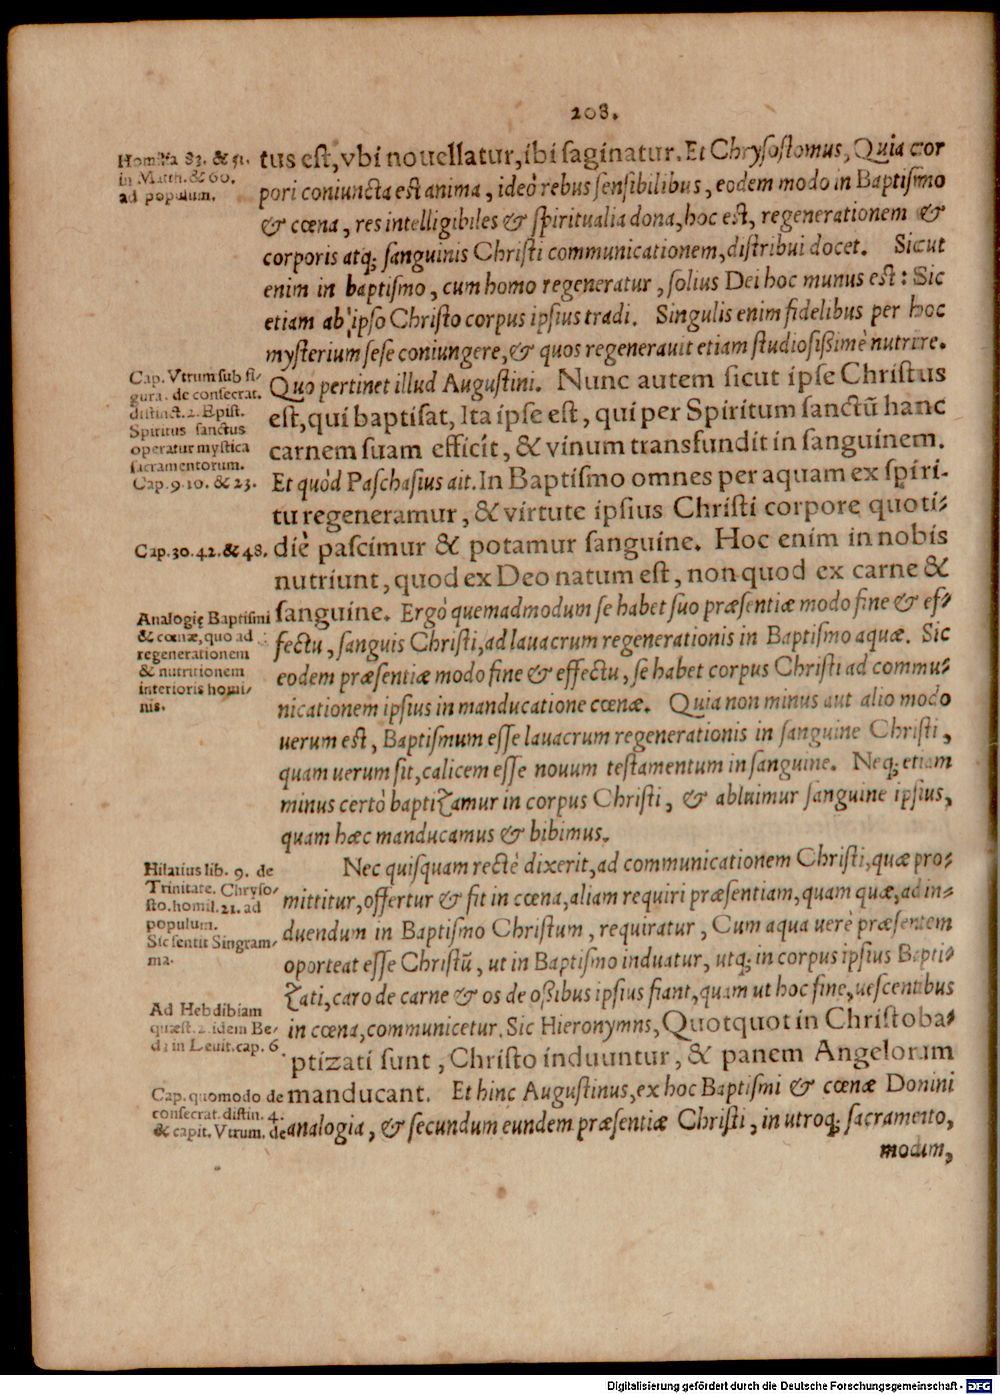 208.
Homilia 83. & 51.
in Matth. & 60.
ad populum.
tus est, vbi nouellatur, ibi saginatur. Et Chrysostomus, Quia cor
pori coniuncta est anima, ideò rebus sensibilibus, eodem modo in Baptismo
& cœna, res intelligibiles & spiritualia dona, hoc est, regenerationem &
corporis atq; sanguinis Christi communicationem, distribui docet. Sicut
enim in baptismo, cum homo regeneratur, solius Dei hoc munus est: Sic
etiam ab ipso Christo corpus ipsius tradi. Singulis enim fidelibus per hoc
mysterium sese coniungere, & quos regenerauit etiam studiosissimè nutrire.
Cap. Vtrum sub fi-
gura. de consecrat.
distinct. 2. Epist.
Spiritus sanctus
operatur mystica
sacramentorum.
Cap. 9. 10. & 23.
Quo pertinet illud Augustini. Nunc autem sicut ipse Christus
est, qui baptisat, Ita ipse est, qui per Spiritum sanctū hanc
carnem suam efficit, & vinum transfundit in sanguinem.
Et quòd Paschasius ait. In Baptismo omnes per aquam ex spiri-
tu regeneramur, & virtute ipsius Christi corpore quoti-
Cap. 30. 42. & 48.
diè pascimur & potamur sanguine. Hoc enim in nobis
nutriunt, quod ex Deo natum est, non quod ex carne &
Analogię Baptismi
& cœnæ, quo ad
regenerationem
& nutritionem
interioris homi-
nis.
sanguine. Ergò quemadmodum se habet suo præsentiæ modo fine & ef-
fectu, sanguis Christi, ad lauacrum regenerationis in Baptismo aquæ. Sic
eodem præsentiæ modo fine & effectu, se habet corpus Christi ad commu-
nicationem ipsius in manducatione cœnæ. Quia non minus aut alio modo
uerum est, Baptismum esse lauacrum regenerationis in sanguine Christi,
quam uerum sit, calicem esse nouum testamentum in sanguine. Neq; etiam
minus certò baptizamur in corpus Christi, & abluimur sanguine ipsius,
quam hæc manducamus & bibimus.
Hilarius lib. 9. de
Trinitate. Chryso-
sto. homil. 21. ad
populum.
Sic sentit Singram-
ma.
Nec quisquam rectè dixerit, ad communicationem Christi, quæ pro-
mittitur, offertur & fit in cœna, aliam requiri præsentiam, quam quæ, ad in-
duendum in Baptismo Christum, requiratur, Cum aqua uerè præsentem
oporteat esse Christū, ut in Baptismo induatur, utq; in corpus ipsius Bapti-
zati, caro de carne & os de ossibus ipsius fiant, quam ut hoc fine, uescentibus
Ad Hebdibiam
quæst. 2. idem Be-
da in Leuit. cap. 6.
in cœna, communicetur. Sic Hieronymns, Quotquot in Christo ba-
ptizati sunt, Christo induuntur, & panem Angelorum
Cap. quomodo de
consecrat. distin. 4.
& capit. Vtrum. de
manducant. Et hinc Augustinus, ex hoc Baptismi & cœnæ Domini
analogia, & secundum eundem præsentiæ Christi, in utroq; sacramento,
modum,
Digitalisierung gefördert durch die Deutsche Forschungsgemeinschaft - DFG